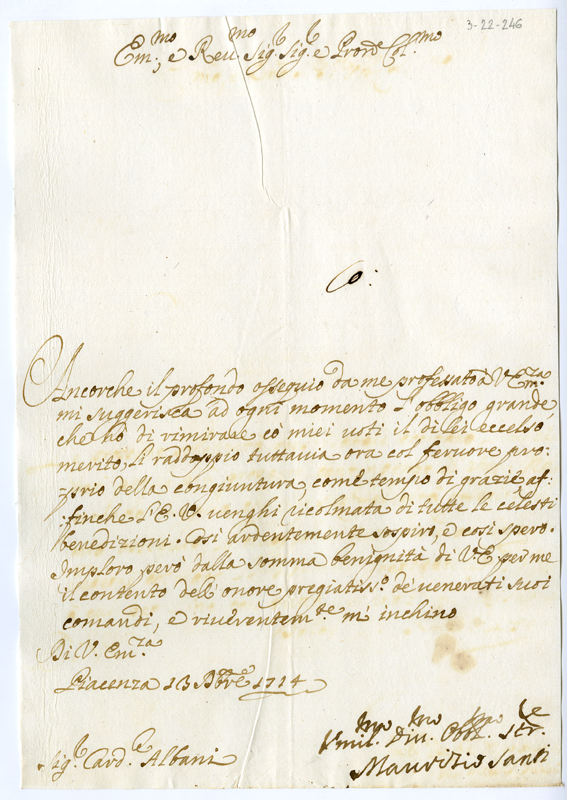 3-22-246
Em.mo, e Reu.mo Sig.r Sig.r e Pron.e Col.mo
Ancorche il profondo osseguio da me professato à V. Em.za
mi suggerisca ad ogni momento l'obbligo grande,
che hò di rimirare cò miei uoti il di lei eccelso
merito, li raddoppio tuttauia ora col feruore pro:
:prio della congiuntura, com'è tempo di grazie, af:
:finche l'E. V. uenghi ricolmata di tutte le celesti
benedizioni. Cosi ardentemente sospiro, e cosi spero.
Imploro però dalla somma benignità di V. E. per me
il contento dell'onore pregiatiss.o de' uenerati suoi
comandi, e riuerentem.te m'inchino
Di V. Em.za
Piacenza 13 Xbre 1714
Sig.r Card.e Albani
Vmil.mo Diu.mo Obb.mo Ser.re
Maurizio Santi